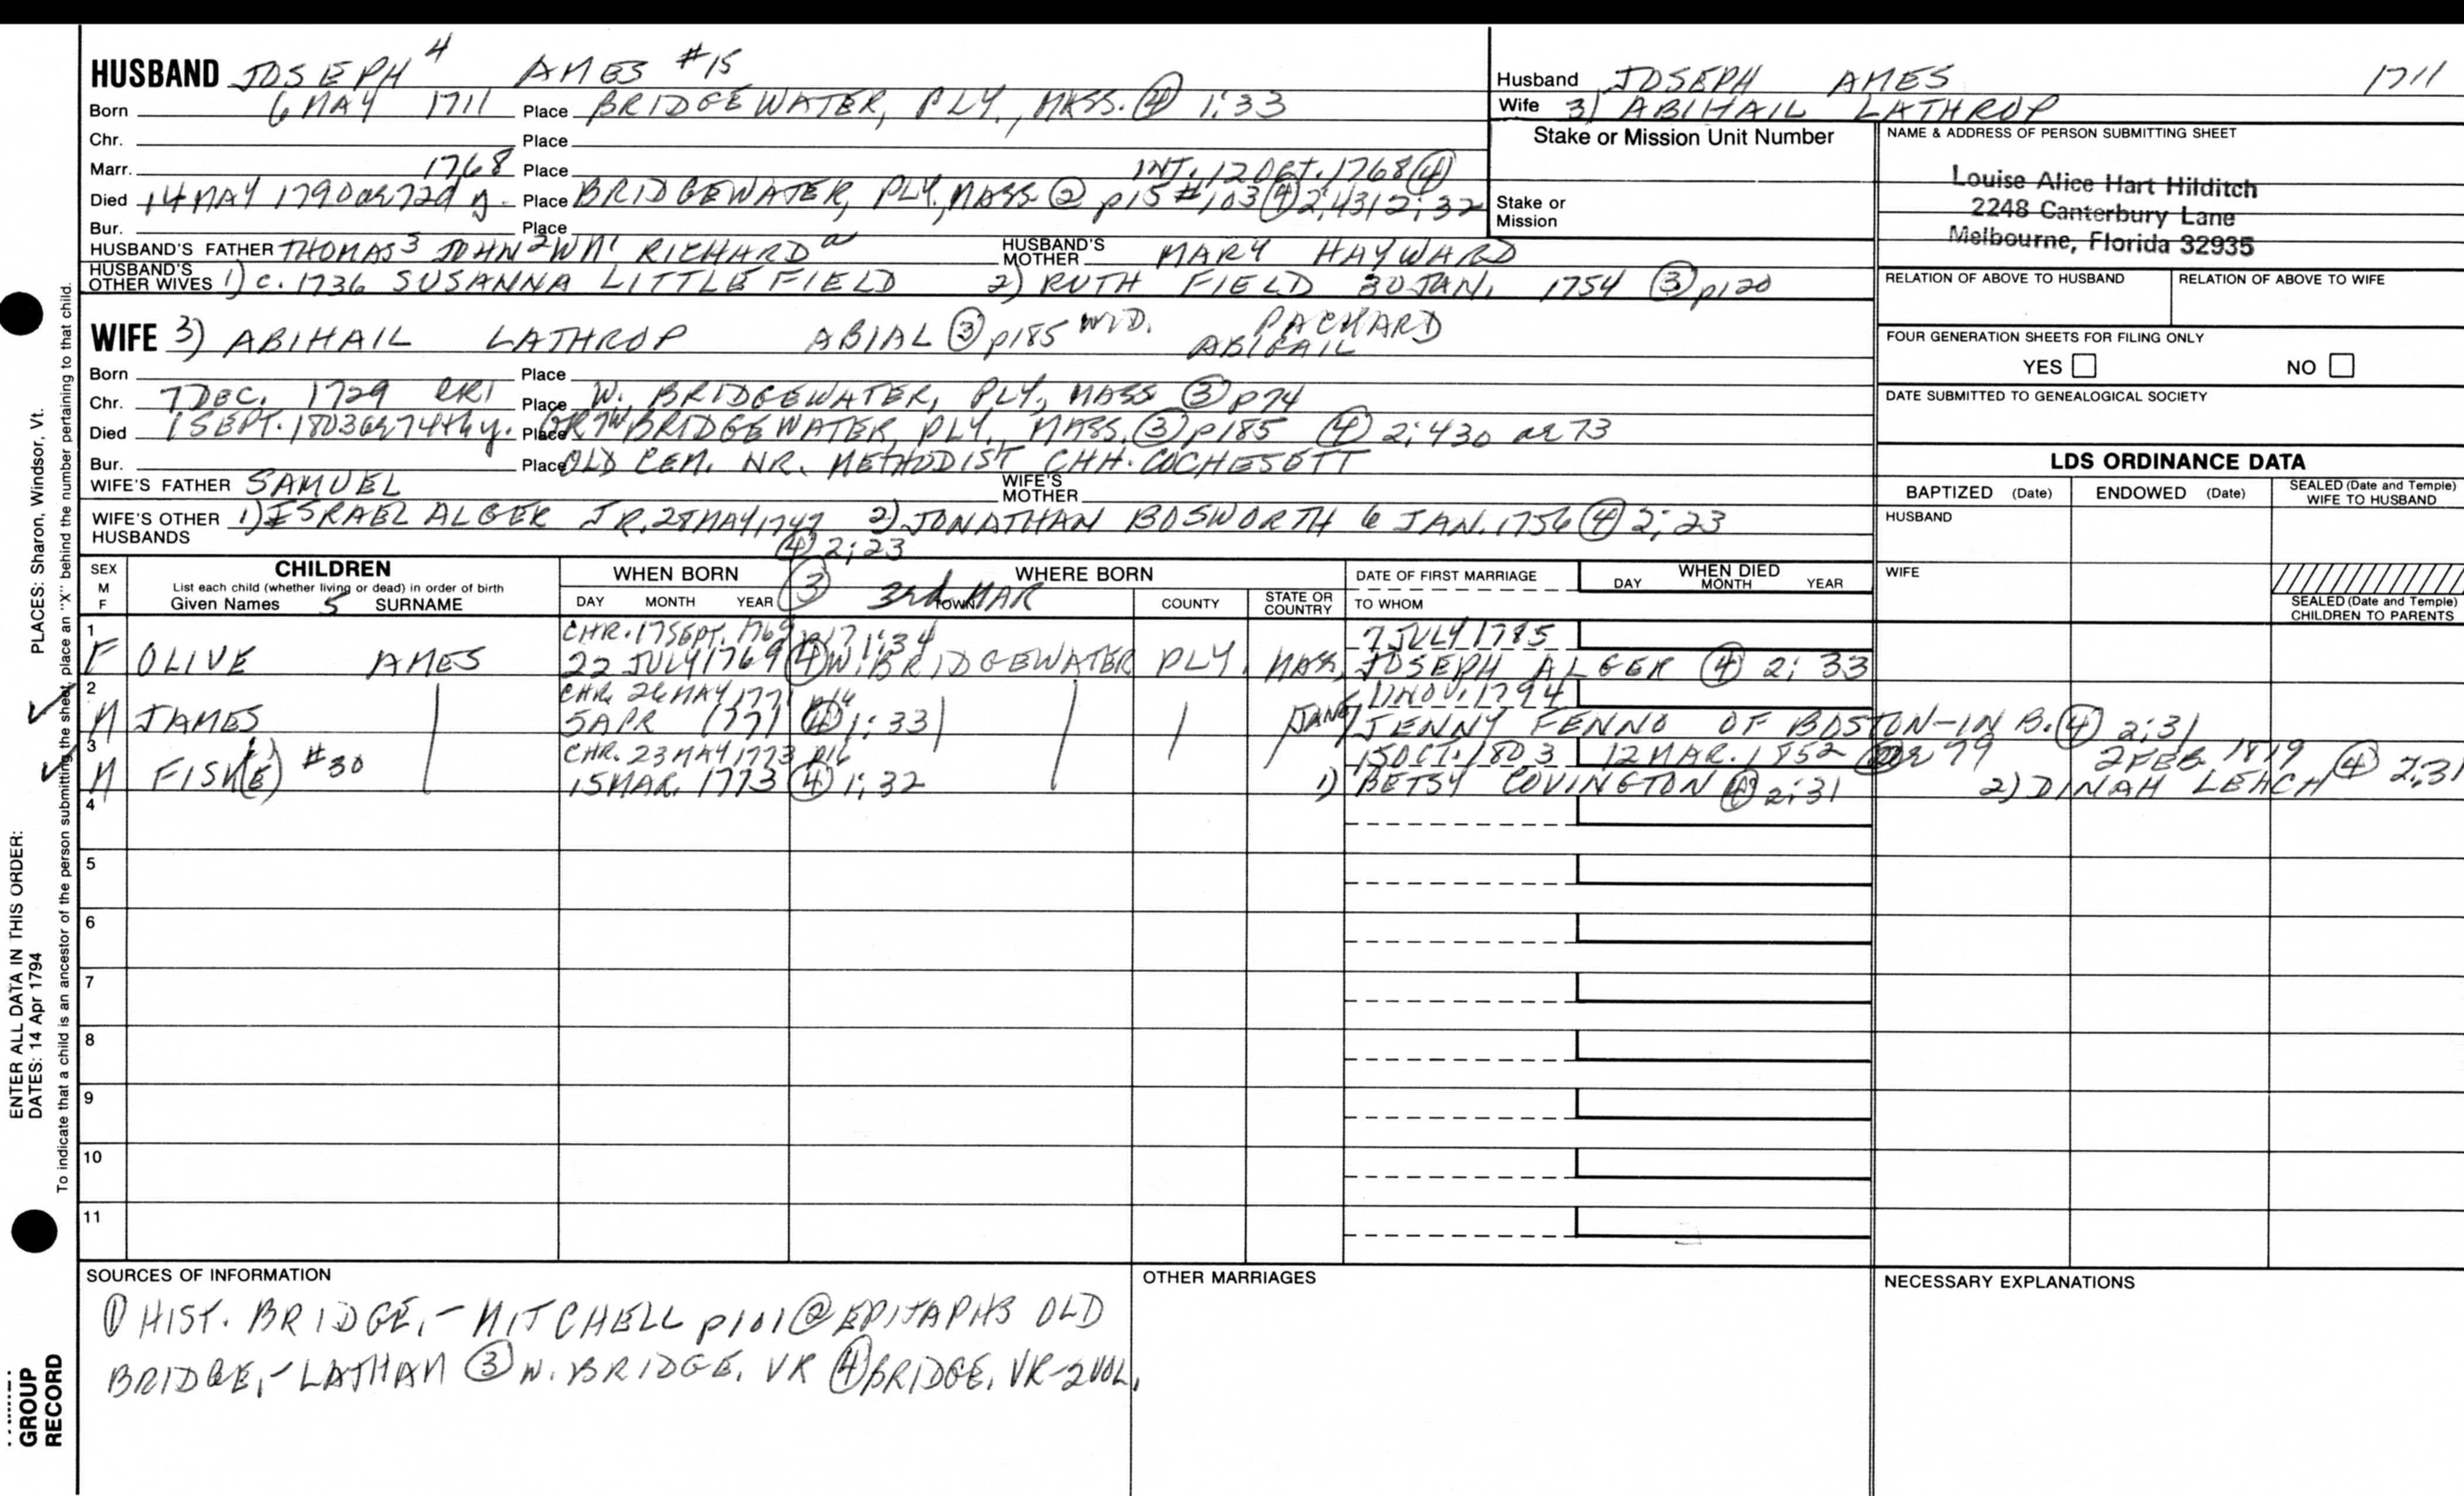 HUSBAND JOSEPH 4 AMES #15
Born 6 MAY 1711 Place BRIDGEWATER, PLY., MASS. ④ 1:33
Chr. Place
Marr. 1768 Place INT. 12 OCT. 1768 ④
Died 14 MAY 1790 ae 72d y. Place BRIDGEWATER, PLY, MASS ② p15 #103 ④ 2;431 2;32
Bur. Place
HUSBAND'S FATHER THOMAS 3 JOHN 2 WM 1 RICHARD a HUSBAND'S MOTHER MARY HAYWARD
HUSBAND'S OTHER WIVES 1) C. 1736 SUSANNA LITTLEFIELD 2) RUTH FIELD 30 JAN. 1754 ③ p120
Husband JOSEPH AMES 1711
Wife 3) ABIHAIL LATHROP
Stake or Mission Unit Number
Stake or Mission
NAME & ADDRESS OF PERSON SUBMITTING SHEET
Louise Alice Hart Hilditch
2248 Canterbury Lane
Melbourne, Florida 32935
RELATION OF ABOVE TO HUSBAND RELATION OF ABOVE TO WIFE
FOUR GENERATION SHEETS FOR FILING ONLY
YES NO
DATE SUBMITTED TO GENEALOGICAL SOCIETY
WIFE 3) ABIHAIL LATHROP ABIAL ③ p185 WID. PACKARD ABIGAIL
Born Place
Chr. 7 DEC. 1729 CR1 Place W. BRIDGEWATER, PLY, MASS ③ p74
Died 1 SEPT. 1803 ae 74th y. Place GR7 W BRIDGEWATER, PLY., MASS. ③ p185 ④ 2:430 ae 73
Bur. Place OLD CEM. NR. METHODIST CHH. COCHESETT
WIFE'S FATHER SAMUEL WIFE'S MOTHER
WIFE'S OTHER HUSBANDS 1) ISRAEL ALGER JR. 28 MAY 1747 ④ 2;23 2) JONATHAN BOSWORTH 6 JAN. 1756 ④ 2;23
LDS ORDINANCE DATA
BAPTIZED (Date) ENDOWED (Date) SEALED (Date and Temple) WIFE TO HUSBAND
HUSBAND
WIFE
SEALED (Date and Temple) CHILDREN TO PARENTS
SEX M F
CHILDREN
List each child (whether living or dead) in order of birth
Given Names 5 SURNAME
WHEN BORN DAY MONTH YEAR
③ 3rd MAR
WHERE BORN TOWN COUNTY STATE OR COUNTRY
DATE OF FIRST MARRIAGE TO WHOM
WHEN DIED DAY MONTH YEAR
1 CHR. 17 SEPT. 1769 p17 1:34 7 JULY 1785
F OLIVE AMES 22 JULY 1769 ④ W. BRIDGEWATER PLY. MASS, JOSEPH ALGER ④ 2; 33
2 CHR. 26 MAY 1771 p16 11 NOV. 1794
M JAMES 5 APR 1771 ④ 1:33 JANE/ JENNY FENNO OF BOSTON-IN B. ④ 2;31
3 CHR. 23 MAY 1773 p16 15 OCT. 1803 12 MAR. 1852 ae 79 2 FEB 1819
M FISK(E) #30 15 MAR. 1773 ④ 1;32 1) BETSY COVINGTON ④ 2;31 2) DINAH LEACH ④ 2;31
4
5
6
7
8
9
10
11
SOURCES OF INFORMATION
① HIST. BRIDGE. - MITCHELL p101 ② EPITAPHS OLD
BRIDGE. - LATHAM ③ W. BRIDGE. VR ④ BRIDGE. VR-2 VOL.
OTHER MARRIAGES
NECESSARY EXPLANATIONS
PLACES: Sharon, Windsor, Vt.
ENTER ALL DATA IN THIS ORDER:
DATES: 14 Apr 1794
To indicate that a child is an ancestor of the person submitting the sheet, place an "X" behind the number pertaining to that child.
GROUP
RECORD